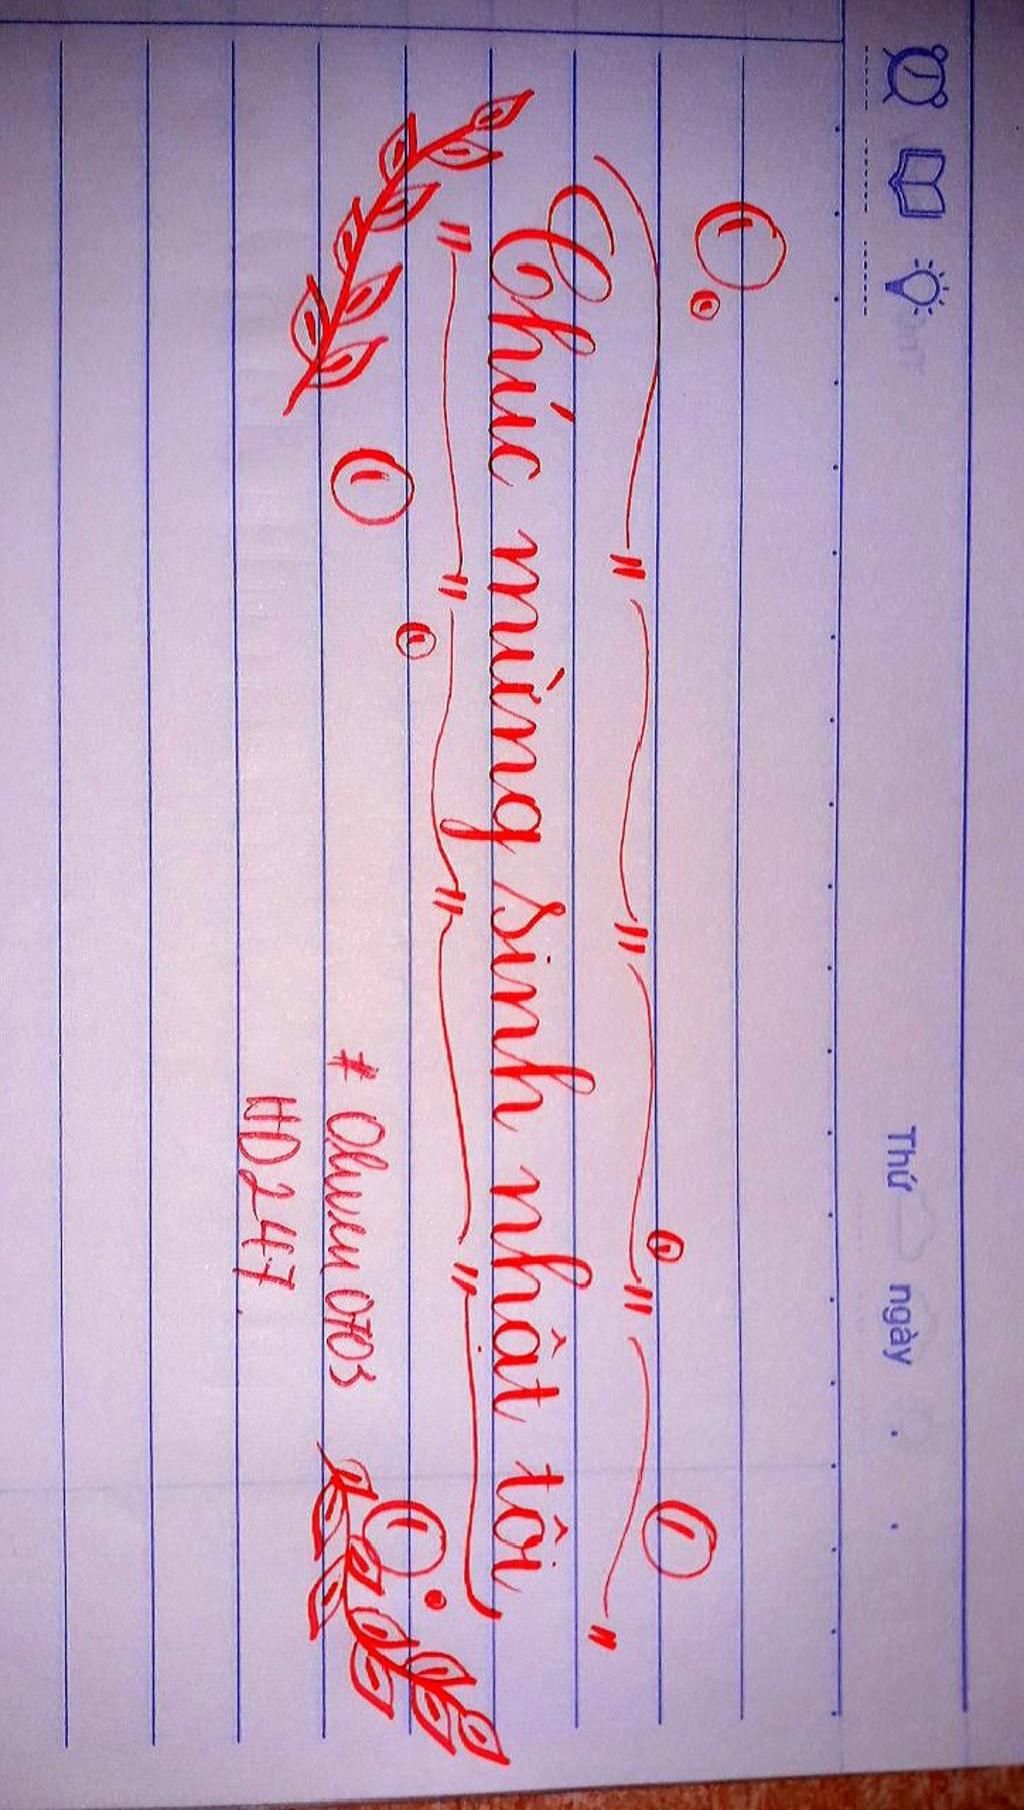 Thứ ngày
Chúc mừng sinh nhật tôi
HD247